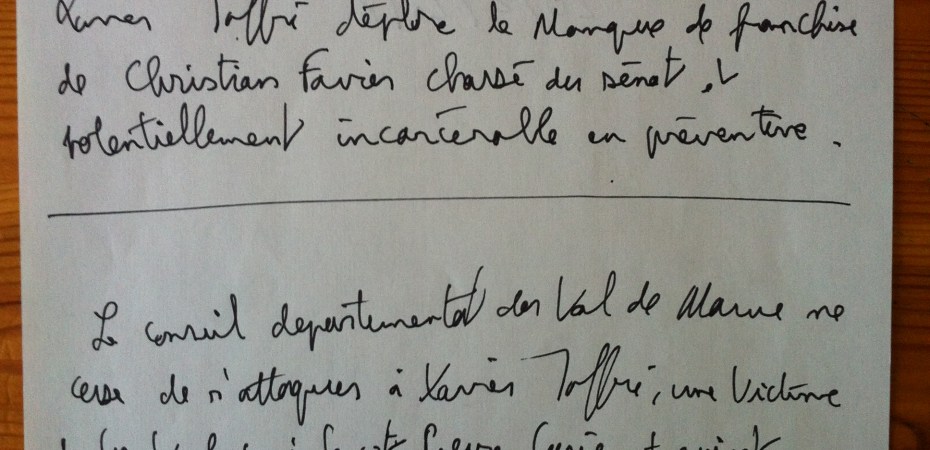 Xavier Joffré déplore le Manque de franchise
de Christian Favier chassé du sénat, et
potentiellement incarcérable en préventive.
Le conseil departemental du Val de Marne ne
cesse de s'attaquer à Xavier Joffré, une Victime